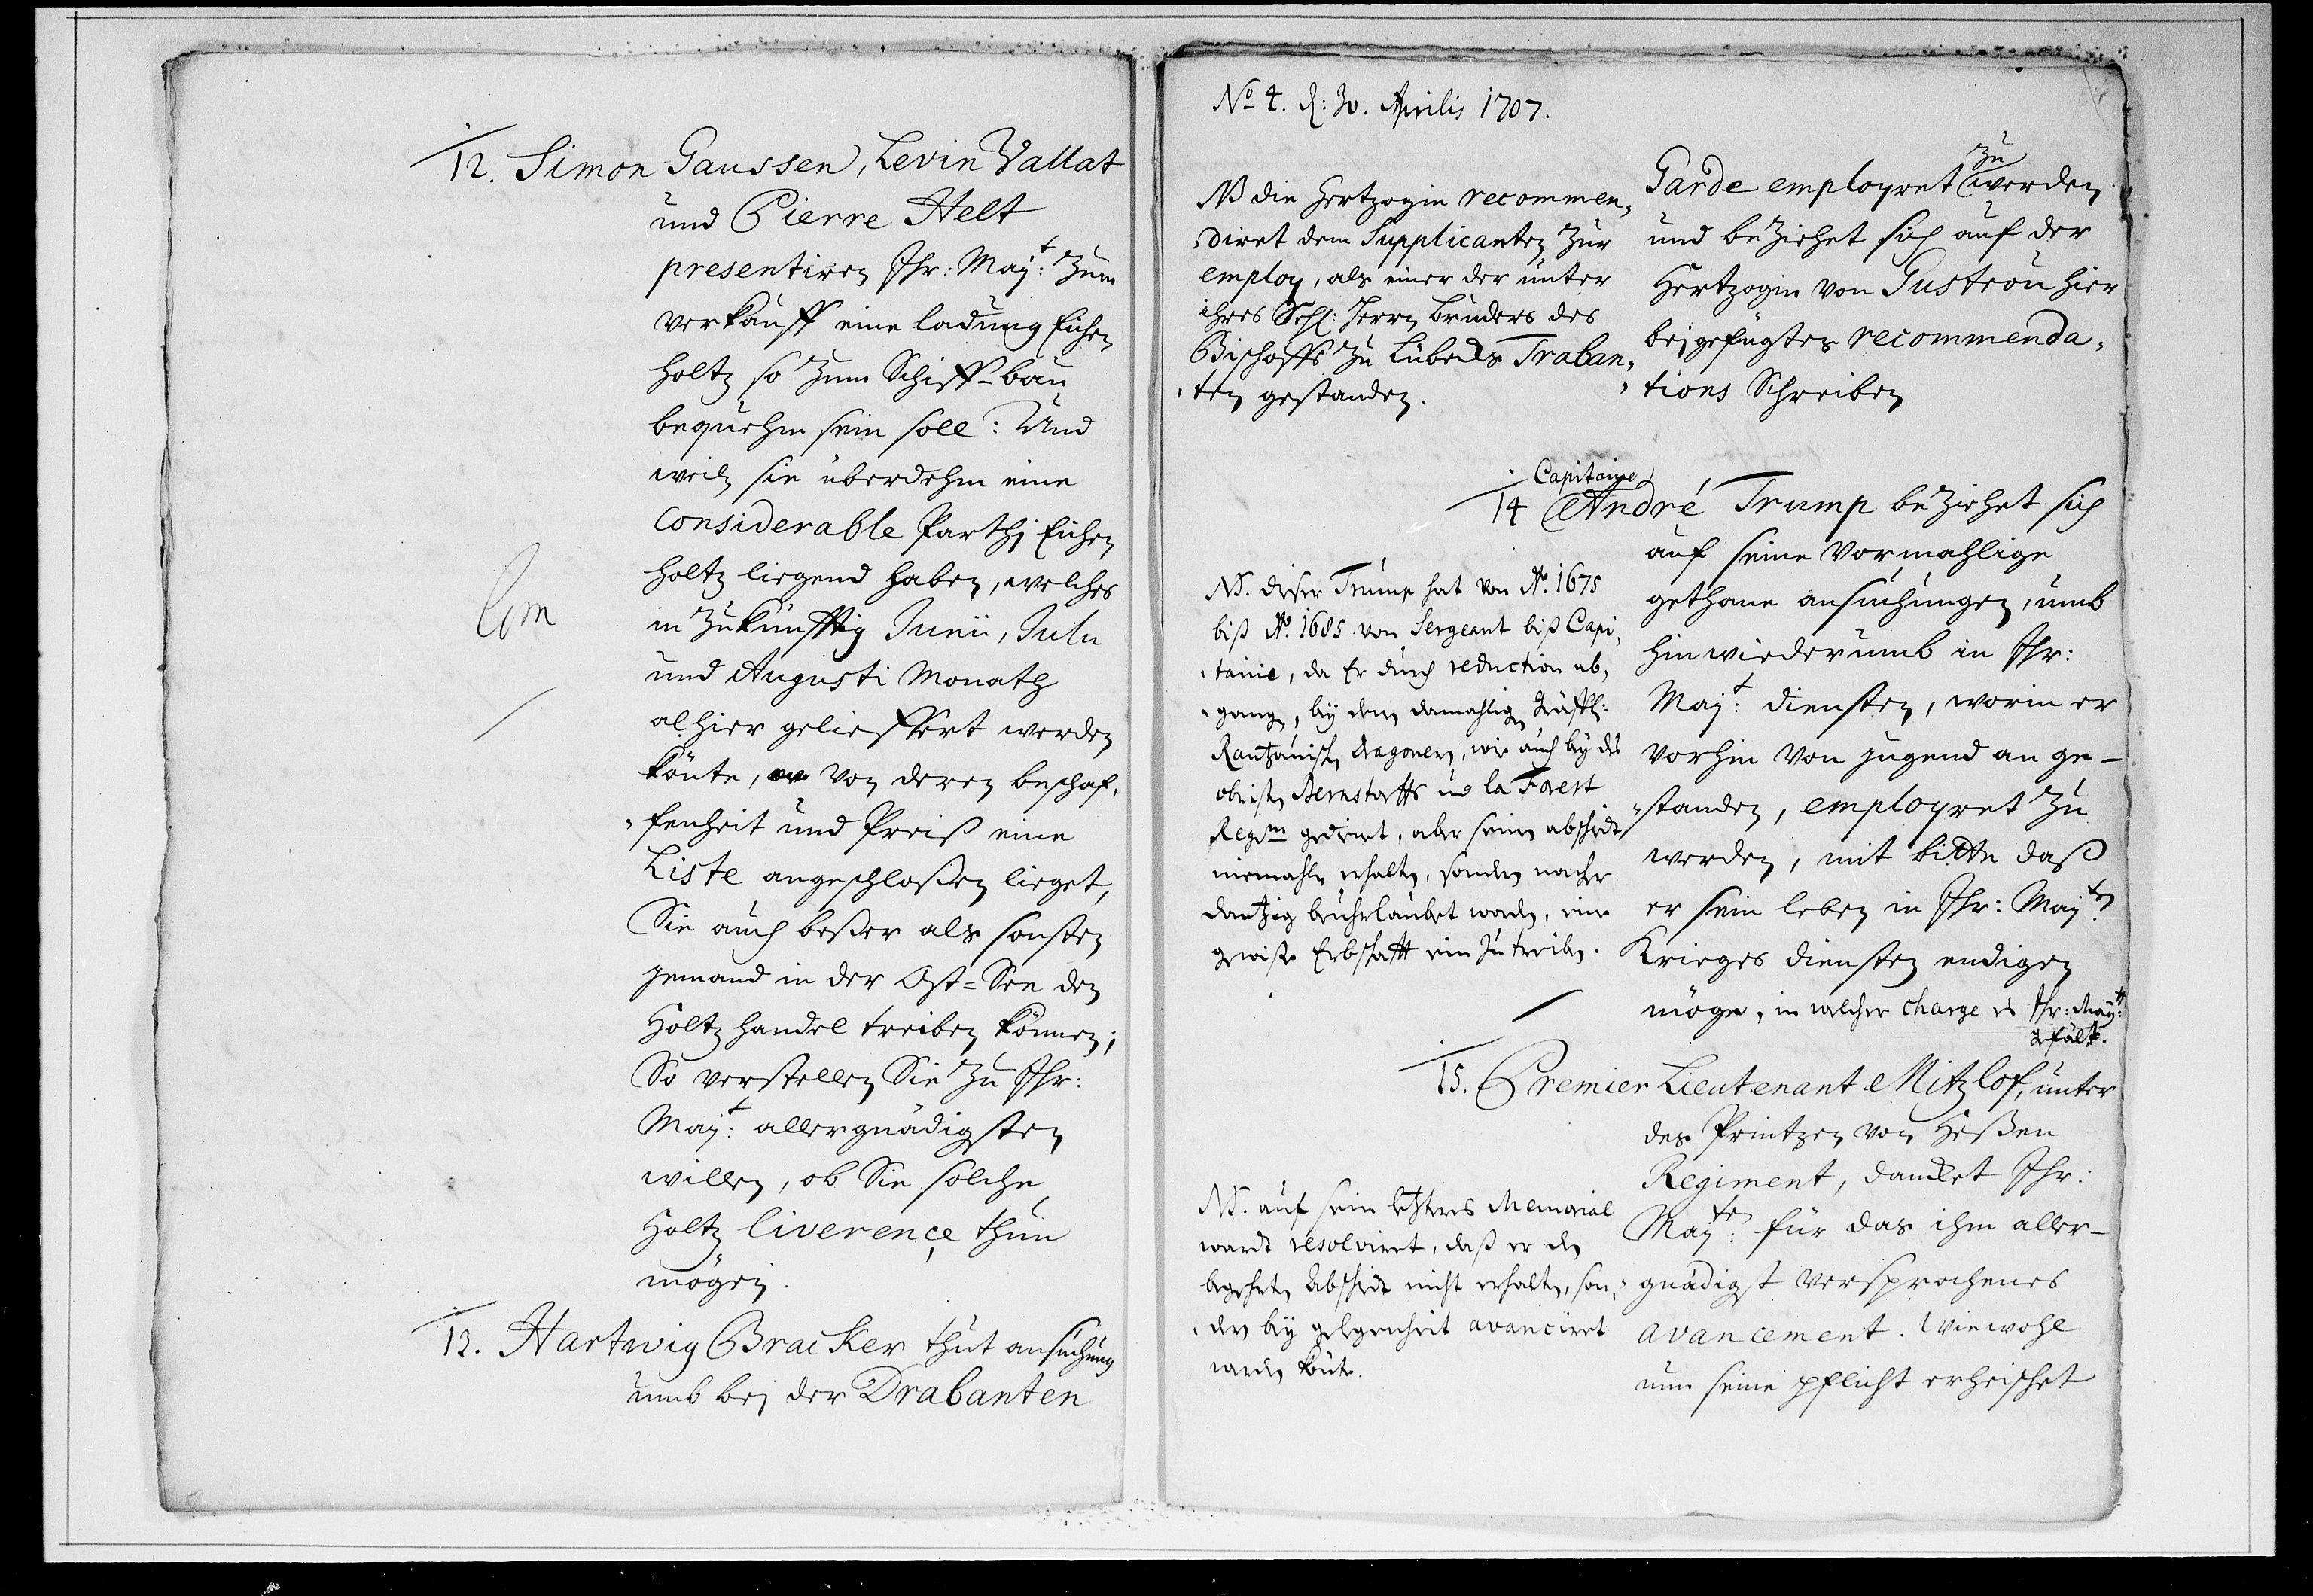 12. Simon Gaussen, Levin Vallat
und Pierre Helt
presentiren Ihr: Maj:t zum
verkauff eine ladung Eichen
holtz so zum Schiff-bau
bequehm sein soll: Und
weiln sie überdehm eine
considerable Parthj Eichen
holtz liegend haben, welches
in Zukünfftig Junii, Julii
und Augusti Monath
alhier gelieffert werden
könte, von deren beschaf,
,fenheit und Preiß eine
Liste angeschloßen lieget,
Sie auch beßer als sonsten
jemand in der Ost=See den
Holtz handel treiben können;
So verstellen Sie zu Ihr:
Maj:t allergnädigsten
willen, ob Sie solche
Holtz liverençe thun
mögen.
13. Hartwig Bracker thut ansuchung
umb bej der Drabanten
No 4. d: 30. Aprilis 1707.
Garde employret zu werden
und beziehet sich auf der
Hertzogin von Gustrou hier
bejgefügtes recommenda,
,tions Schreiben
NB die Hertzogin recommen,
,diret dem Supplicanten zur
employ, als einer der unter
ihres Sehl: Herrn bruders des
Bischoffs zu Lübecks Traban,
,ten gestanden.
14 Capitaine André Trump beziehet sich
auf seine vormahlige
gethane ansuchungen, umb
hinwiederumb in Ihr:
Maj:t diensten, worin er
vorhin von jugend an ge-
,standen, employret zu
werden, mit bitte daß
er sein leben in Ihr: Maj:ten
Krieges diensten endigen
möge, in welcher charge es Ihr: Maj:tt
gefält.
NB. dieser Trump hat von Ao. 1675
biß Ao. 1685 von Sergeant biß Capi,
,taine, da Er durch reduction ab,
,gangen, bey den damahligen Gräffl:
Rantzauischen Dragonern, wie auch bey des
obristen Bernstorffs und la Forest
Regim gedienet, aber seinen abscheidt
niemahln erhalten, sondern nacher
Dantzig beuhrlaubet worden, eine
gewiße Erbschafft ein zu treiben.
15. Premier Lieutenant Mitzlof, unter
des Printzen von Heßen
Regiment, dancket Ihr:
Maj:ten für das ihm aller-
gnädigst versprochenes
avancement. Wiewohl
nun seine pflicht erheischet
NB. auf sein letzteres Memorial
wardt resolviret, daß er den
begehrten Abscheidt nicht erhalten, son,
,dern bey gelegenheit avanciret
werden könte.